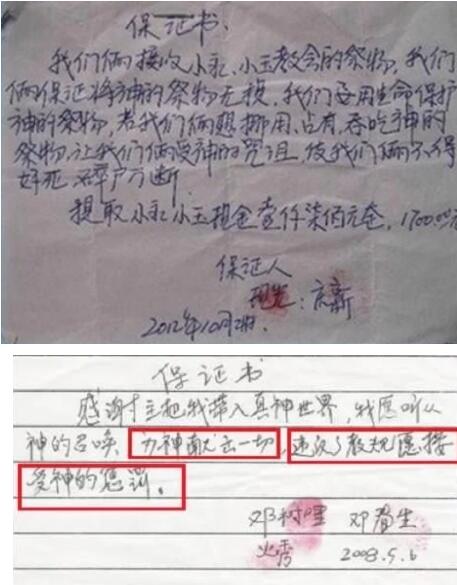 保证书.
我们俩接收小永、小玉教会的祭物,我们
俩保证将神的祭物无损,我们要用生命保护
神的祭物,若我们俩想挪用、占有、吞吃神的
祭物,让我们俩受神的咒诅,使我们俩不得
好死 碎尸万断.
提取小永 小玉现金壹仟柒佰元仝, 1700.00元
保证人
: 庆新
2012年10月2
保证书
感谢主把我带入真神世界,我愿听从
神的召唤 为神献出一切,违反了教规愿接
受神的惩罚。
邓树 邓春生
火秀 2008.5.6